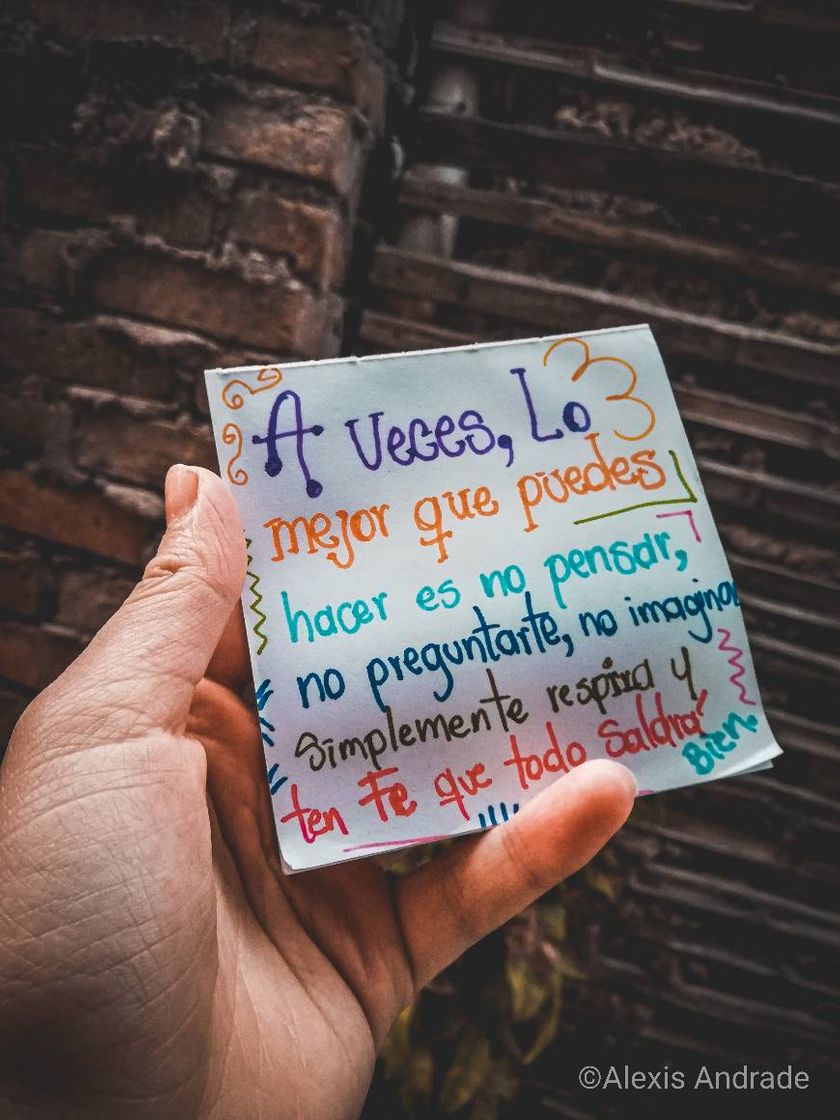 A veces, Lo
mejor que puedes
hacer es no pensar,
no preguntarte, no imaginar
simplemente respira y
ten Fe que todo Saldrá
Bien.
©Alexis Andrade